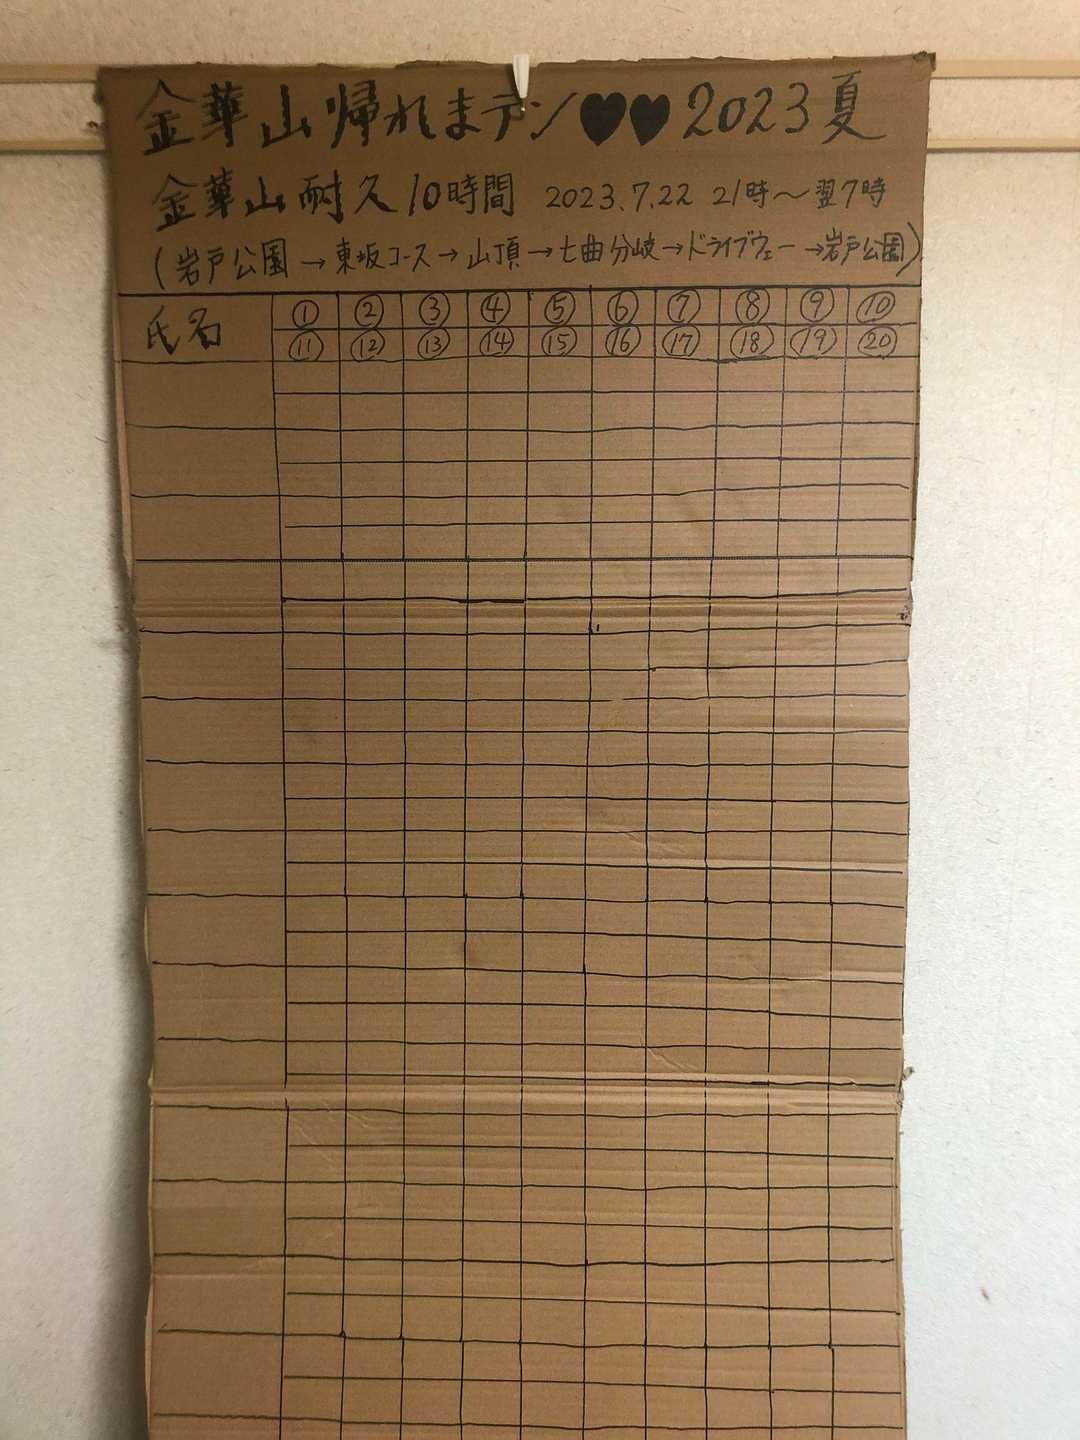 金華山帰れまテン♥♥2023夏
金華山耐久10時間 2023.7.22 21時〜翌7時
(岩戸公園→東坂コース→山頂→七曲分岐→ドライブウェー→岩戸公園)
氏名 ① ② ③ ④ ⑤ ⑥ ⑦ ⑧ ⑨ ⑩
⑪ ⑫ ⑬ ⑭ ⑮ ⑯ ⑰ ⑱ ⑲ ⑳